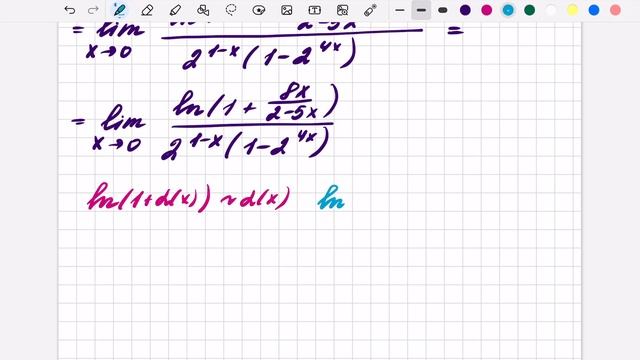 = lim 2-5x / 2^{1-x}(1-2^{4x}) =
x→0
= lim ln(1 + 8x/(2-5x)) / 2^{1-x}(1-2^{4x})
x→0
ln(1+α(x)) ~ α(x) ln